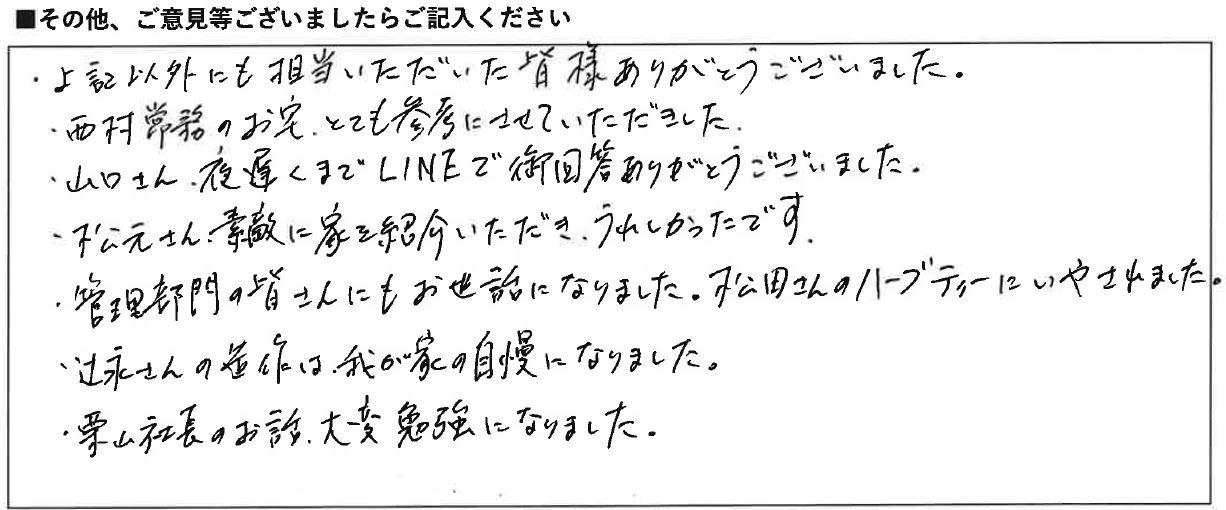 ■その他、ご意見等ございましたらご記入ください
・上記以外にも担当いただいた皆様ありがとうございました。
・西村常務のお宅、とても参考にさせていただきました。
・山口さん、夜遅くまでLINEで御回答ありがとうございました。
・松元さん、素敵に家を紹介いただき、うれしかったです。
・管理部門の皆さんにもお世話になりました。松田さんのハーブティーにいやされました。
・辻永さんの造作は、我が家の自慢になりました。
・栗山社長のお話、大変勉強になりました。